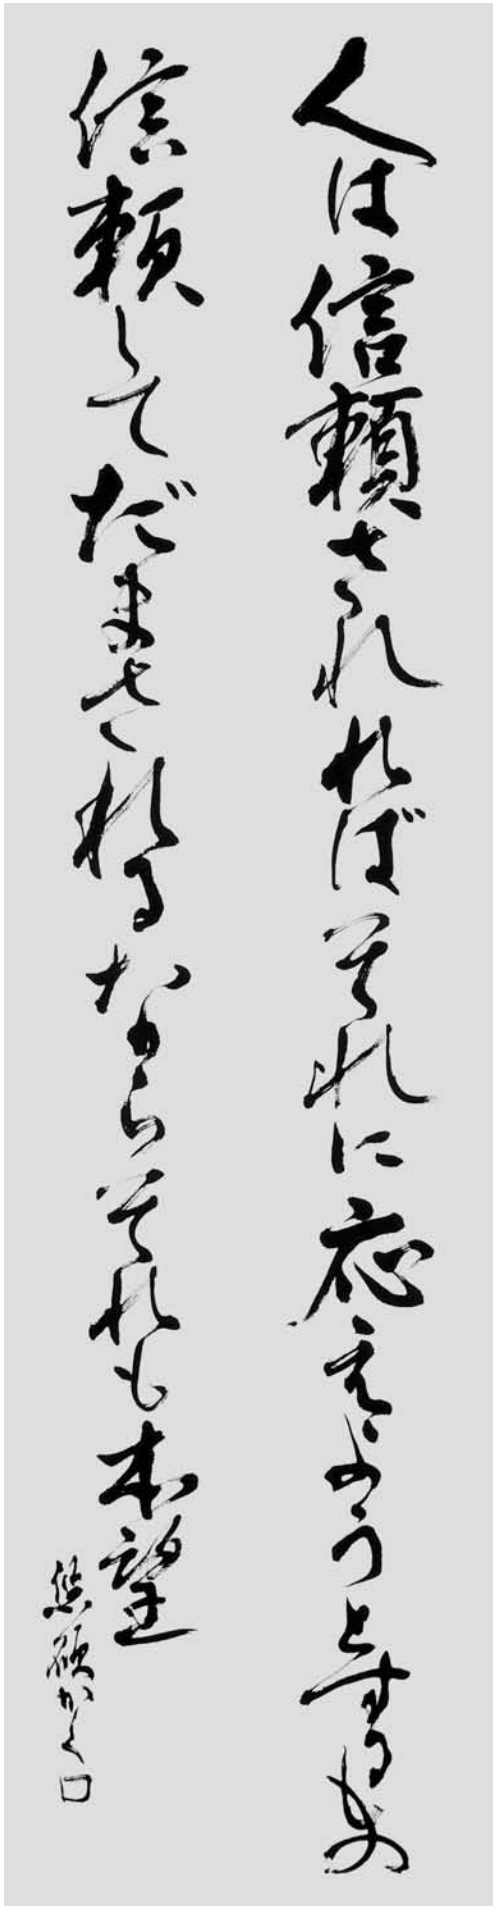 人は信頼されればそれに応えようとするもの
信頼してだまされるならそれも本望
悠碩かく